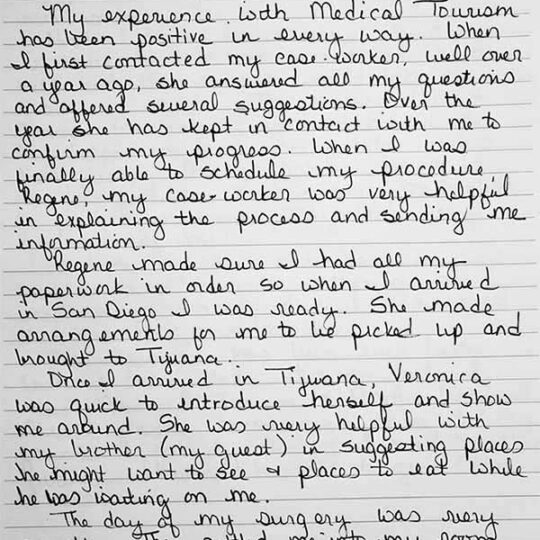 My experience with Medical Tourism
has been positive in every way. When
I first contacted my case-worker, well over
a year ago, she answered all my questions
and offered several suggestions. Over the
year she has kept in contact with me to
confirm my progress. When I was
finally able to schedule my procedure,
Regene, my case-worker was very helpful
in explaining the process and sending me
information.
Regene made sure I had all my
paperwork in order so when I arrived
in San Diego I was ready. She made
arrangements for me to be picked up and
brought to Tijuana.
Once I arrived in Tijuana, Veronica
was quick to introduce herself and show
me around. She was very helpful with
my brother (my guest) in suggesting places
he might want to see & places to eat while
he was waiting on me.
The day of my surgery was very
me into my room